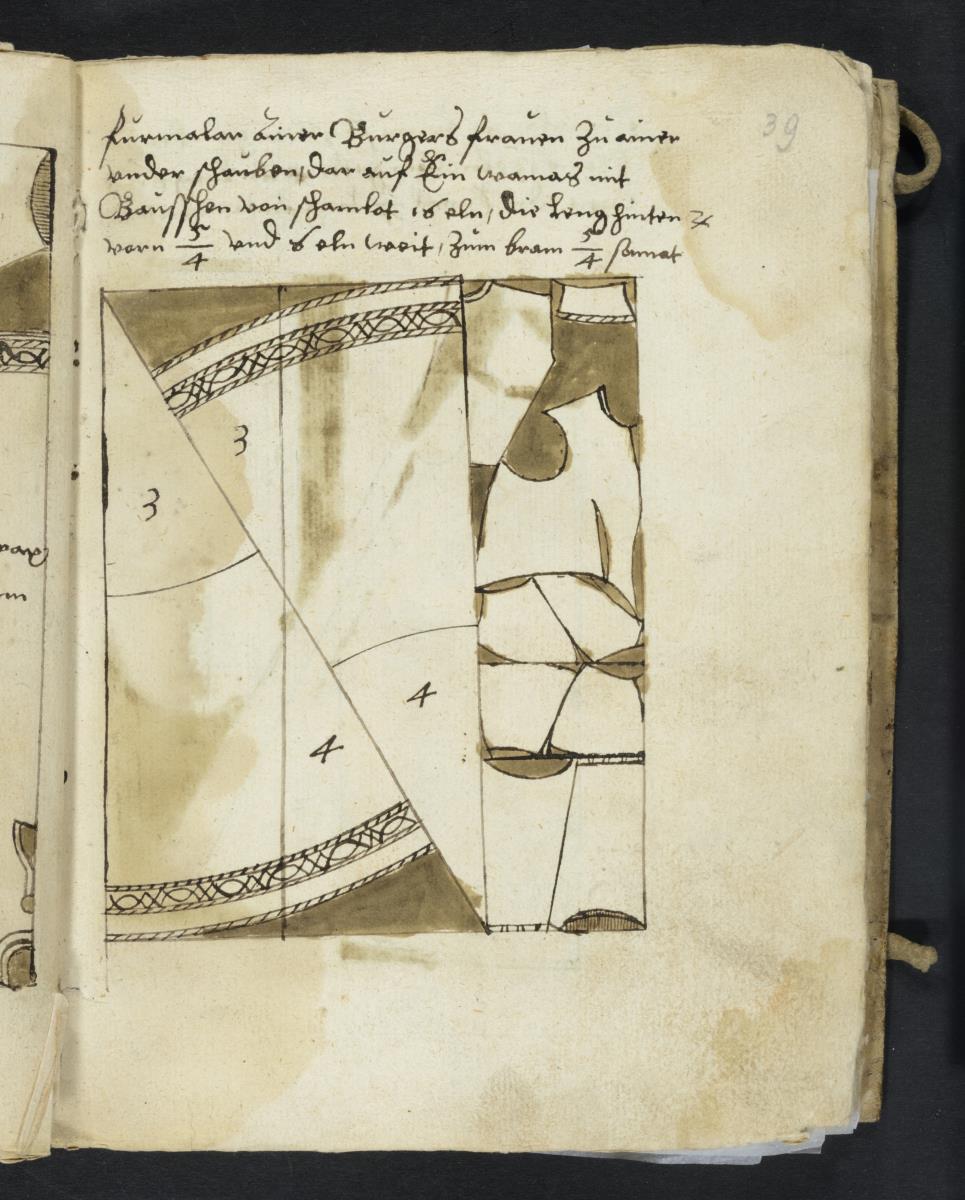 39
furmalar Ainer Burgers frauen zu ainer
vnder schauben, dar auf Ein wamas mit
Bauschen von schamlot 16 eln, die leng hinten 2
vorn 5/4 vnd 6 eln weit, zum bram 5/4 samat
3
3
4
4